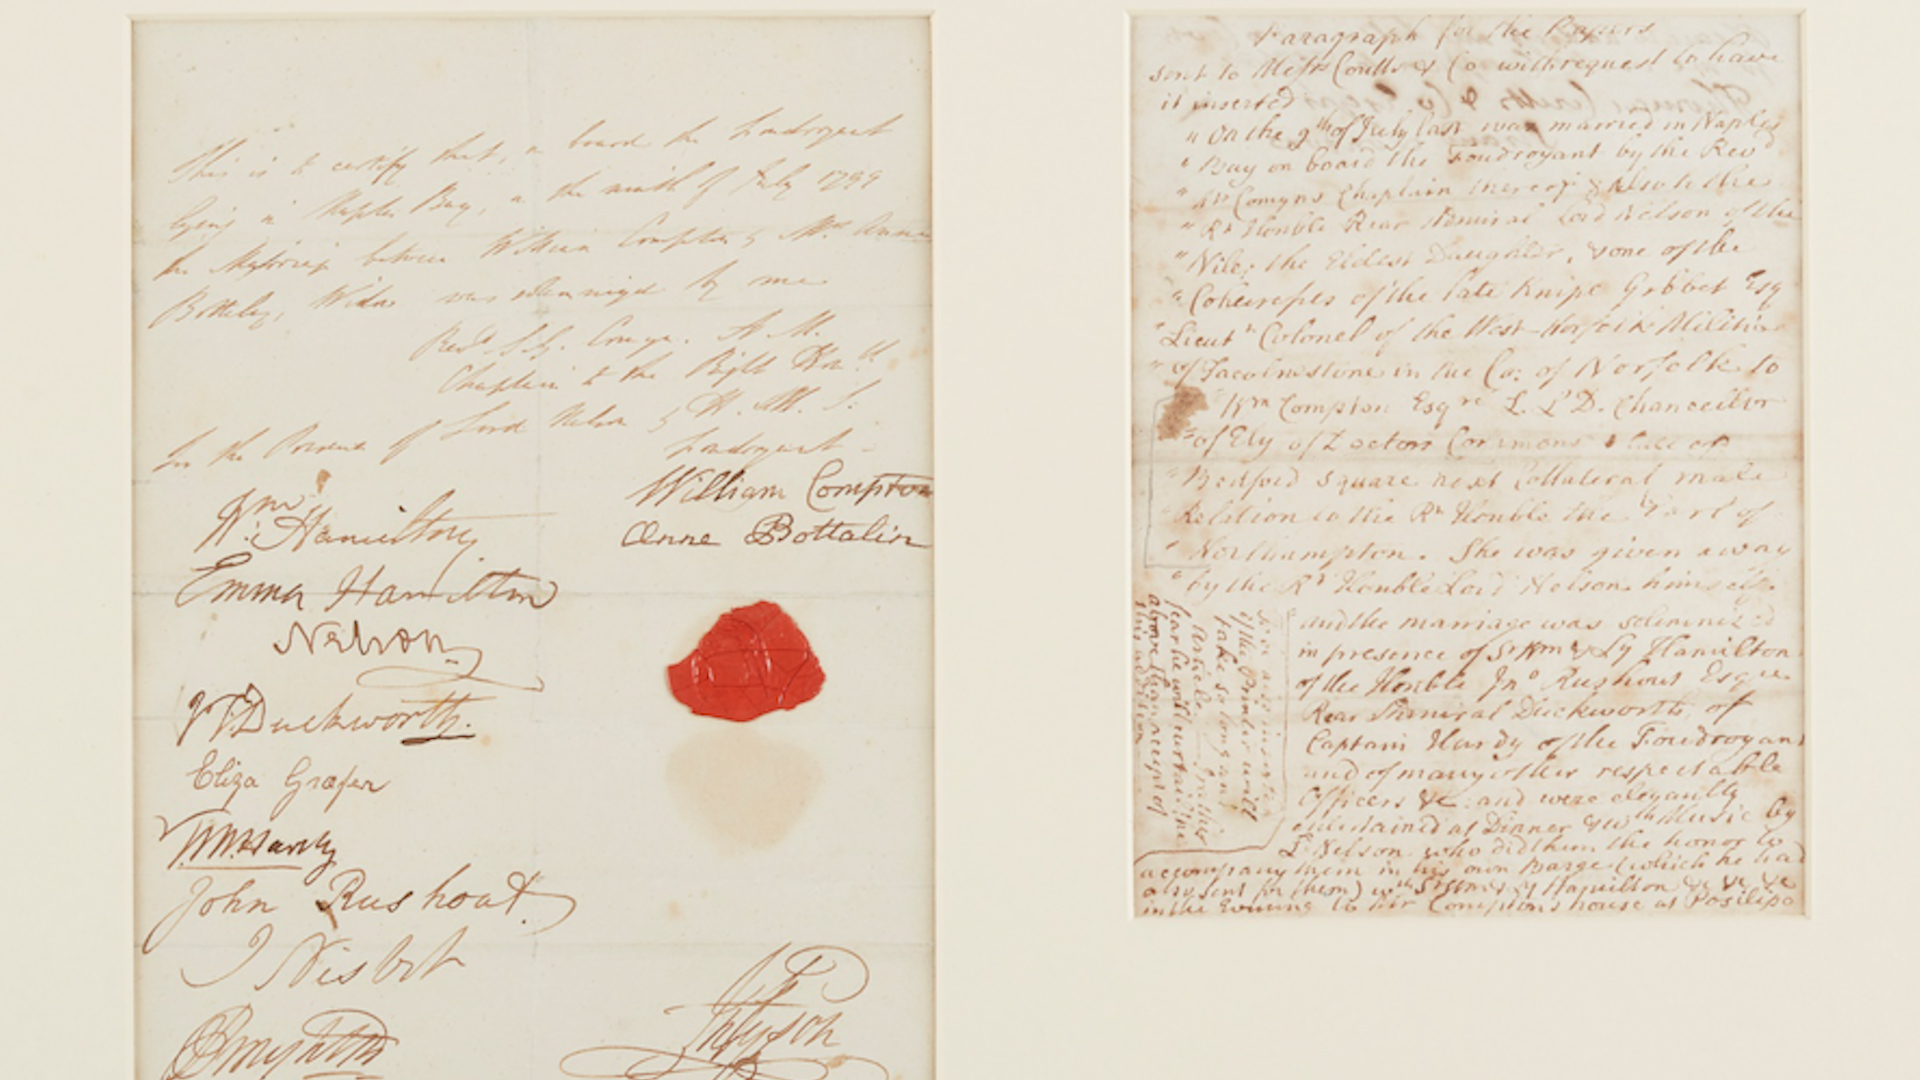 This is to certify that, on board the Foudroyant
lying in Naples Bay, on the ninth of July 1799
the Marriage between William Compton & Mrs Anne
Bottalin, Widow was solemnized by me
Revd. Comyn. A. M.
Chaplain to the Right Honble
Lord Nelson & H. M. S.
Foudroyant
In the Presence of
William Compton
Anne Bottalin
Wm Hamilton
Emma Hamilton
Nelson
J T Duckworth.
Eliza Græfer
T M Hardy
John Rushout
J Nisbet
Paragraph for the Papers
sent to Messrs Coutts & Co with request to have
it inserted
" On the 9th of July last was married in Naples
" Bay on board the Foudroyant by the Revd
" Mr Comyns Chaplain thereof & also to the
" Rt Honble Rear Admiral Lord Nelson of the
" Nile; the Eldest Daughter, & one of the
" Coheiresses of the late Knipe Gobbet Esq
" Lieut Colonel of the West-Norfolk Militia
" of Tacolnestone in the Co: of Norfolk to
" Wm Compton Esqre L. L D. Chancellor
" of Ely of Doctors Commons & late of
" Bedford Square next Collateral male
" Relation to the Rt Honble the Earl of
" Northampton. She was given away
" by the Rt Honble Lord Nelson himself
and the marriage was solemnized
in presence of Sr Wm & Ly Hamilton
of the Honble Jno Rushout Esqre
Rear Admiral Duckworth, of
Captain Hardy of the Foudroyant
and of many other respectable
Officers &c. and were elegantly
entertained at Dinner & with Music by
Ld Nelson who did them the honor to
accompany them in his own Barge (which he had
also sent for them) with Sr Wm & Ly Hamilton &c &c &c
in the Evening to Mr Comptons house at Posilipo
of the Printer will
take so long an
Article
fear he will curtail the
above
this addition